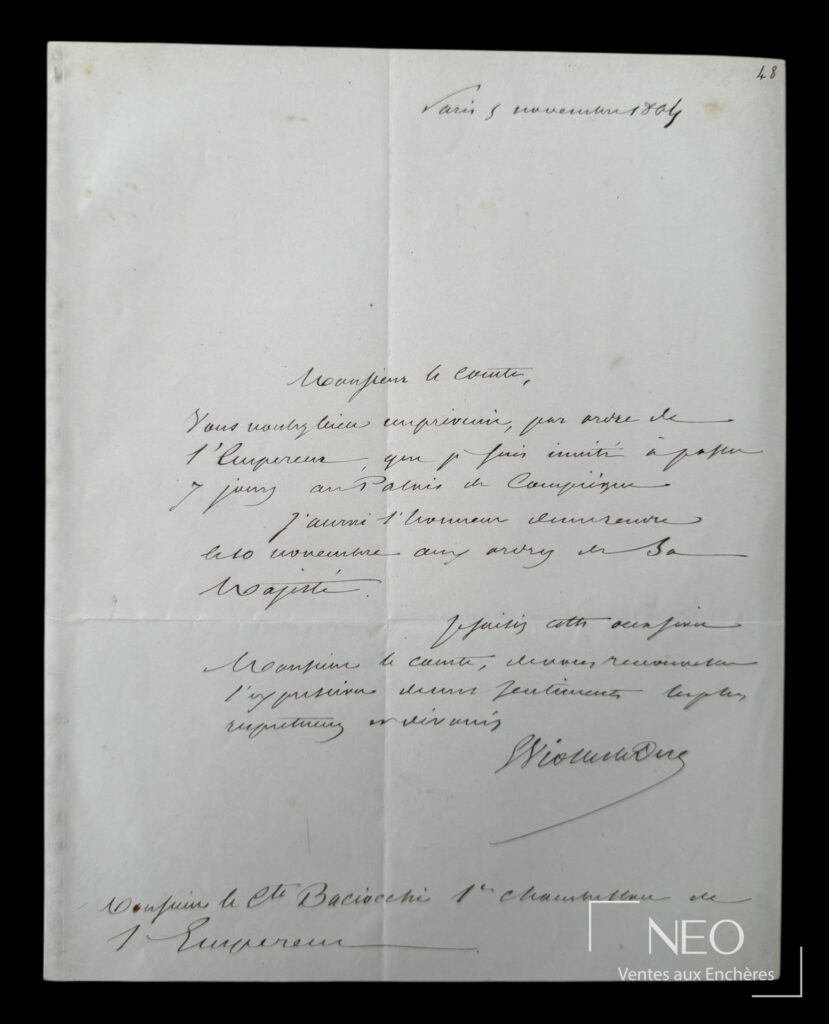 48
Paris 5 novembre 1864
Monsieur le Comte,
Vous voulez bien me prévenir, par ordre de
l'Empereur, que je suis invité à passer
7 jours au Palais de Compiègne
J'aurai l'honneur de me rendre
le 10 novembre aux ordres de Sa
Majesté.
Je saisis cette occasion
Monsieur le comte, de vous renouveler
l'expression de mes sentiments les plus
respectueux et dévoués
EViolletleDuc
Monsieur le Cte Baciocchi 1er chambellan de
l'Empereur
NEO
Ventes aux Enchères